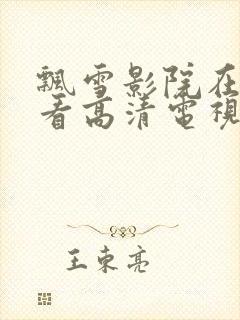 飄雪影院在
看高清電視
王東亮